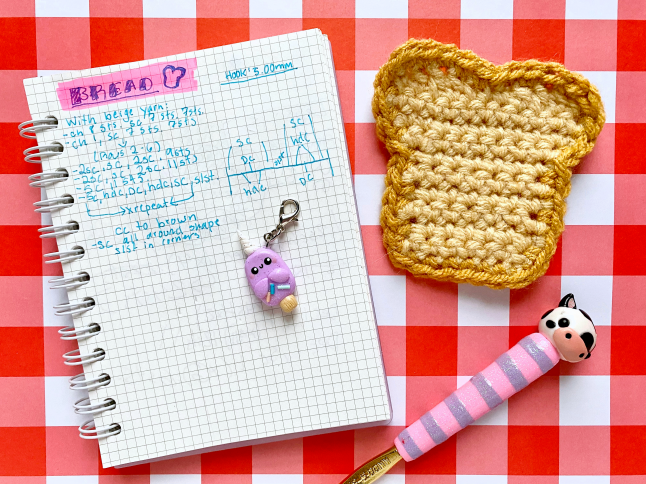 BREAD
Hook: 5.00mm
With beige yarn:
-ch 8 sts, sc 7 sts, 7sts.
-ch 1, sc 7 sts. 7sts
(rows 2-6)
-2sc, sc, 2sc, 9sts
-2sc, sc, 2sc, 11sts
-sc 11 sts
-sc, hdc, DC, hdc, sc, slst.
xrepeat
cc to brown
-sc all around shape
slst in corners
SC
DC
hdc
SC
hdc
DC